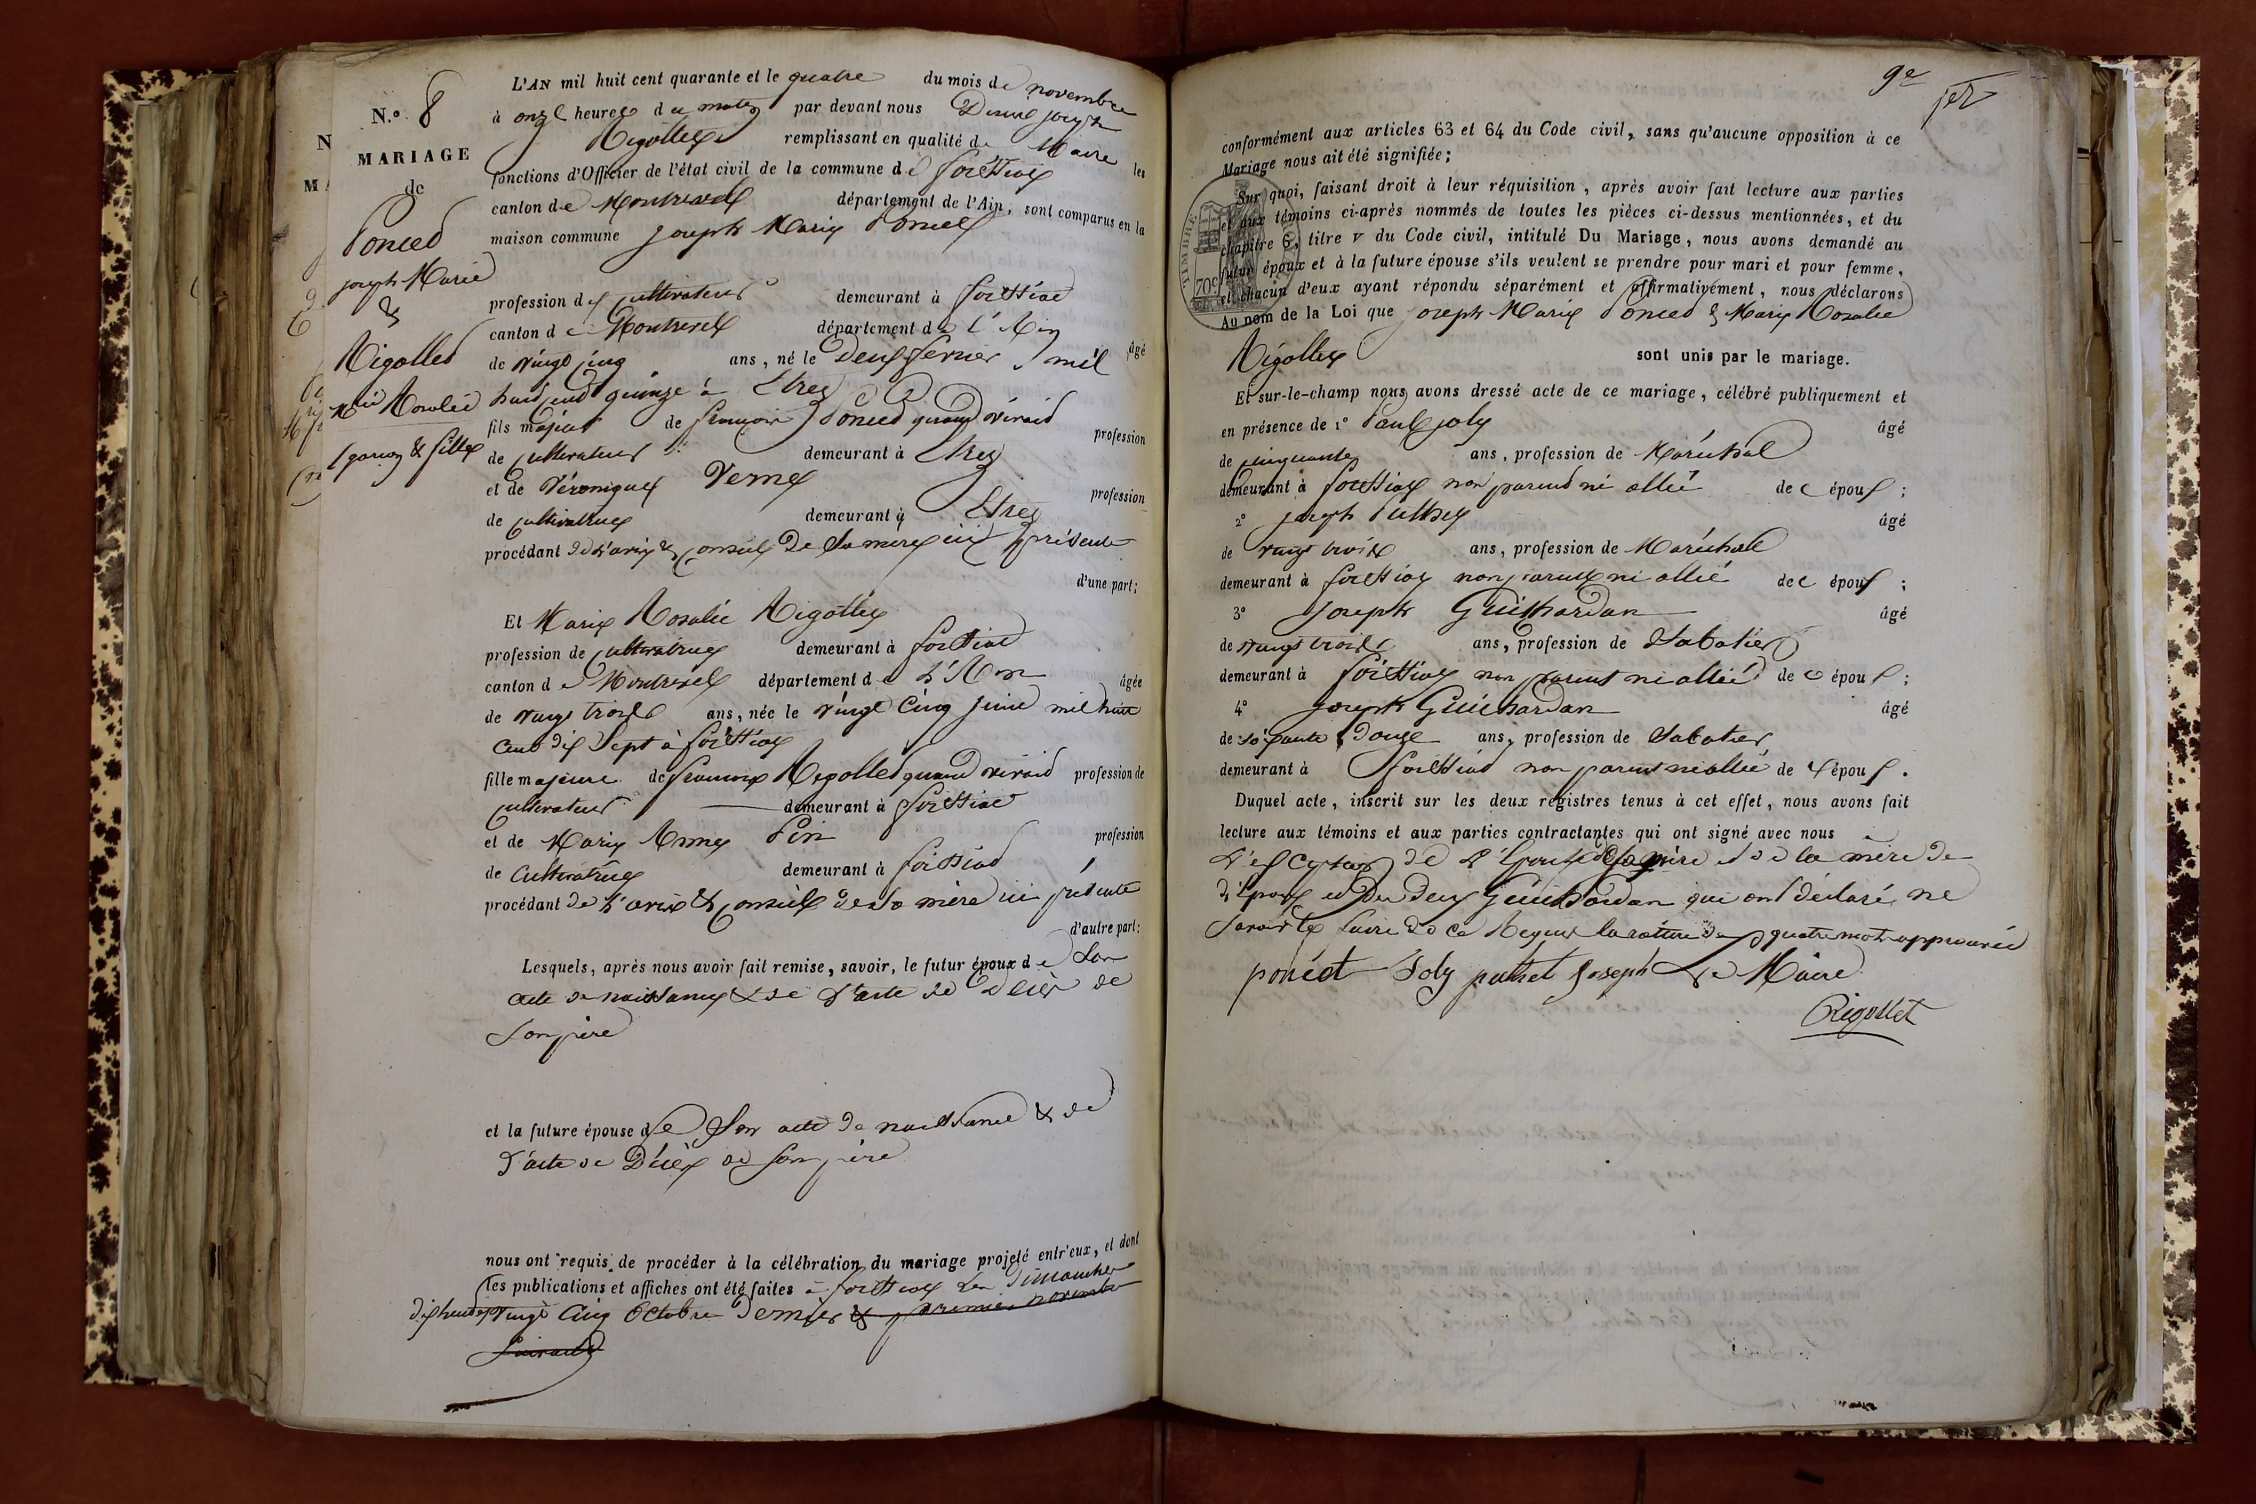 L'AN mil huit cent quarante et le quatre du mois de novembre
N.º 8
à onze heures du matin par devant nous Denis joseph
Rigollet remplissant en qualité de Maire les
MARIAGE
fonctions d'Officier de l'état civil de la commune de foissiat
de
canton de Montrevel département de l'Ain, sont comparus en la
Poncet
maison commune joseph Marie Poncet
joseph Marie
&
profession de cultivateur demeurant à foissiat
canton de Montrevel département de l'Ain âgé
Rigollet
de vingt cinq ans, né le deux fevrier mil
Mie Rosalie
huit cent quinze à Etrez
fils majeur de françois Poncet quand vivait profession
garçon & fille
de cultivateur demeurant à Etrez
et de Véronique Verne profession
de cultivatrice demeurant à Etrez
procédant de l'avis & conseil de sa mere ici présente
d'une part;
Et Marie Rosalie Rigollet
profession de cultivatrice demeurant à foissiat
canton de Montrevel département de l'Ain âgée
de vingt trois ans, née le vingt cinq juin mil huit
cent dix sept à foissiat
fille majeure de francois Rigollet quand vivait profession de
cultivateur demeurant à foissiat
et de Marie Anne Pin profession
de Cultivatrice demeurant à foissiat
procédant de l'avis & conseil de sa mère ici présente
d'autre part:
Lesquels, après nous avoir fait remise, savoir, le futur époux de Son
acte de naissance & de l'acte de décès de
Son père
et la future épouse de Son acte de naissance & de
l'acte de Décès de Son père
nous ont requis de procéder à la célébration du mariage projeté entr'eux, et dont
les publications et affiches ont été faites à foissiat les dimanches
dix huit & vingt Cinq Octobre dernier & premier novembre
Suivant
9e
conformément aux articles 63 et 64 du Code civil, sans qu'aucune opposition à ce
Mariage nous ait été signifiée;
Sur quoi, faisant droit à leur réquisition, après avoir fait lecture aux parties
et aux témoins ci-après nommés de toutes les pièces ci-dessus mentionnées, et du
chapitre 6, titre v du Code civil, intitulé Du Mariage, nous avons demandé au
futur époux et à la future épouse s'ils veulent se prendre pour mari et pour femme,
et chacun d'eux ayant répondu séparément et affirmativement, nous déclarons
TIMBRE
70c
Au nom de la Loi que joseph Marie Poncet & Marie Rosalie
Rigollet sont unis par le mariage.
Et sur-le-champ nous avons dressé acte de ce mariage, célébré publiquement et
en présence de 1º Paul joly âgé
de cinquante ans, profession de Maréchal
demeurant à foissiat non parent ni allié de l'époux;
2º joseph Puthet âgé
de vingt trois ans, profession de Maréchal
demeurant à foissiat non parent ni allié de l'époux;
3º joseph Guichardan âgé
de vingt trois ans, profession de Sabotier
demeurant à foissiat non parent ni allié de l'époux;
4º joseph Guichardan âgé
de soixante & douze ans, profession de Sabotier
demeurant à foissiat non parent ni allié de l'époux.
Duquel acte, inscrit sur les deux registres tenus à cet effet, nous avons fait
lecture aux témoins et aux parties contractantes qui ont signé avec nous
à l'exception de l'épouse de sa mère et de la mère de
l'époux et des deux Guichardan qui ont déclaré ne
Savoir le faire de ce Requis la rature de quatre mots approuvée
poncet Joly puthet Joseph Le Maire
Rigollet